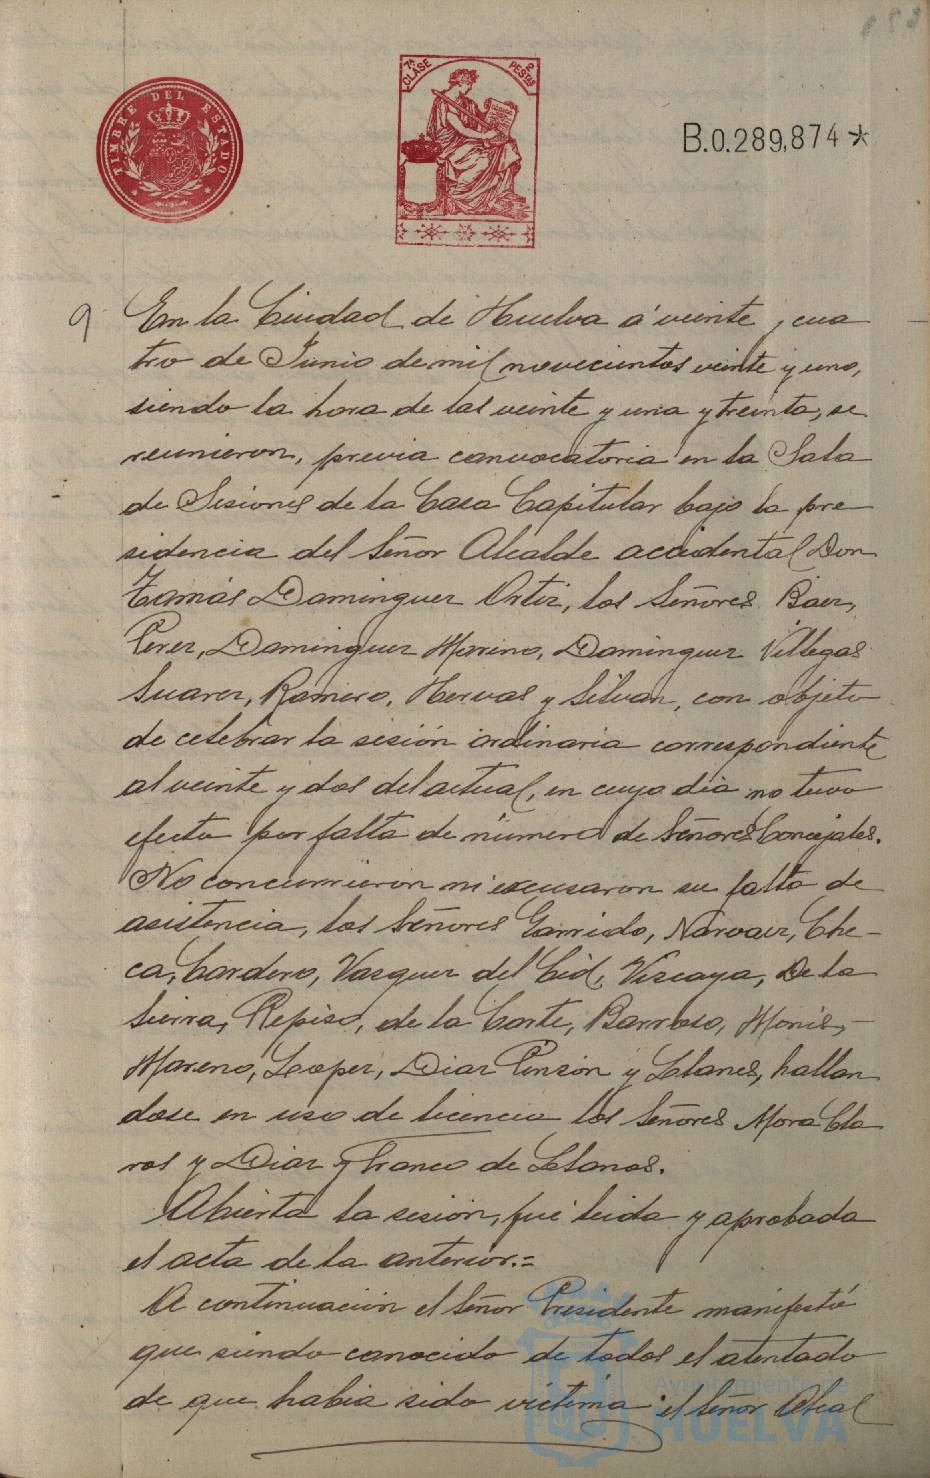 TIMBRE DEL ESTADO
7ª CLASE 2 PESTAS
B.0.289,874*
9 En la Ciudad de Huelva á veinte y cua
tro de Junio de mil novecientos veinte y uno,
siendo la hora de las veinte y una y treinta, se
reunieron, previa convocatoria en la Sala
de Sesiones de la Casa Capitular bajo la pre
sidencia del Señor Alcalde accidental Don
Tomás Dominguez Ortiz, los Señores Baez,
Perez, Dominguez Moreno, Dominguez Villegas
Suarez, Romero, Hervas y Silvan, con objeto
de celebrar la sesión ordinaria correspondiente
al veinte y dos del actual, en cuyo dia no tuvo
efecto por falta de número de Señores Concejales.
No concurrieron ni excusaron su falta de
asistencia, los Señores Garrido, Narvaez, Che-
ca, Cordero, Vazquez del Cid, Vizcaya, De la
Sierra, Repiso, de la Corte, Barroso, Monis,-
Moreno, Lopez, Diaz Pinzón y Llanes, hallan
dose en uso de licencia los Señores Mora Cla
ros y Diaz y Franco de Llanos.
Abierta la sesión, fué leida y aprobada
el acta de la anterior.=
A continuación el Señor Presidente manifestó
que siendo conocido de todos el atentado
de que habia sido víctima el Señor Alcal
Ayuntamiento de
HUELVA